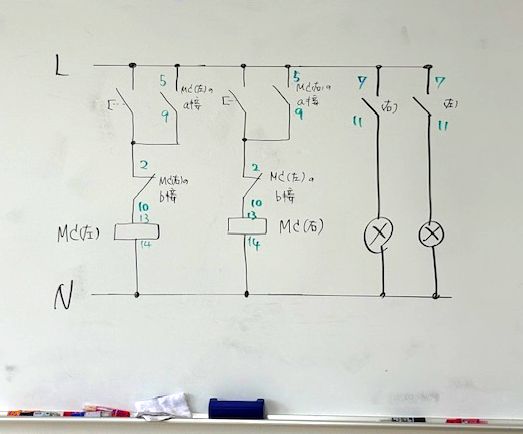 L
5
MC(左)の
a接
9
5
MC(右)の
a接
9
7
(右)
11
7
(左)
11
2
MC(右)の
b接
10
13
MC(左)
14
2
MC(左)の
b接
10
13
MC(右)
14
N